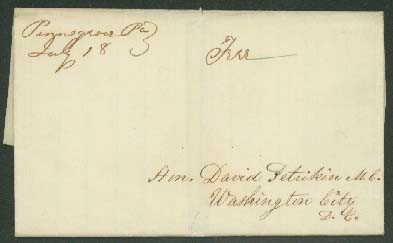 Pennsgrove Pa
July 18
Free
Hon. David Petrikin M.C.
Washington City
D.C.